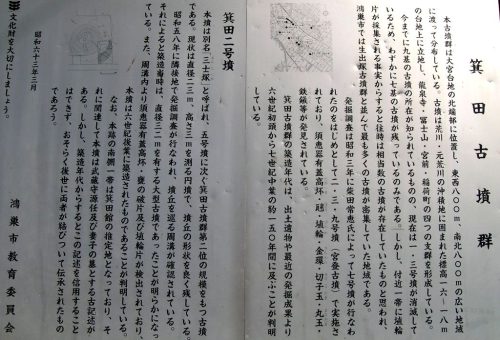 箕田古墳群
本古墳群は大宮台地の北端部に位置し、東西八〇〇m・南北八〇〇mの広い地域
に渡って分布している。古墳は荒川・元荒川の沖積地に囲まれた標高一六~一八m
の台地上に立地し、龍泉寺・富士山・宮前・稲荷町の四つの支群を形成している。
今までに九基の古墳の所在が知られているものの、現在は一・三号墳が消滅して
いるため、わずかに七基の古墳が残っているのみである。しかし、付近一帯に埴輪
片が採集される事実からすると往時は相当数の古墳が存在していたものと思われ、
鴻巣市では生出塚古墳群と並んで最も多くの古墳が密集していた地域である。
発掘調査は昭和三年に柴田常恵氏によって七号墳が行なわ
れたのをはじめとして二・三・九号墳(宮登古墳)で実施さ
れており、須恵器有蓋高坏・・埴輪・金環・切子玉・丸玉・
鉄鏃等が発見されている。
箕田古墳群の築造年代は、出土遺物や最近の発掘成果より
六世紀初頭から七世紀中葉の約一五〇年間に及ぶことが判明
している。
箕田二号墳
本墳は別名「三士塚」と呼ばれ、五号墳に次ぐ箕田古墳群第二位の規模をもつ古墳
である。現状は直径二五m、高さ三mを測る円墳で、墳丘の形状を良く残している。
昭和五八年に隣接地で発掘調査が行なわれ、墳丘を巡る周溝が確認されている。
それによると築造当時は、直径三二mを有する大型古墳であったことが明らかになっ
ている。また、周溝内より須恵器有蓋高坏・甕の破片及び埴輪片が検出されており、
本墳は六世紀後葉に築造されたものであることが判明している。
なお、本墳の南側一帯は箕田館の指定地となっており、そ
れに関連して本墳は武蔵守源任及び妻子の墓とする古記が
ある。しかし、築造年代からするとこの記述を信用すること
はできず、おそらく後世に両者が結びついて伝承されたもの
であろう。
昭和六十三年三月
鴻巣市教育委員会
文化財を大切にしましょう。